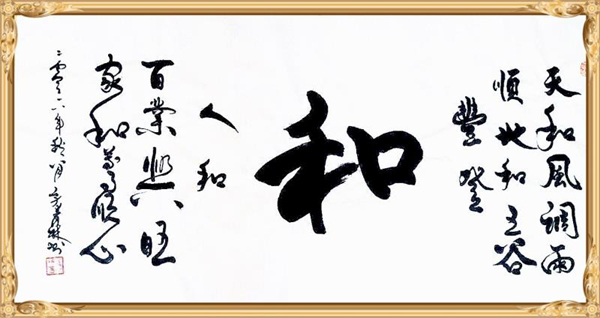 天和風調雨
順地和五谷
豐登
和
人和
百業興旺
家和萬事順心
二零一六年秋月